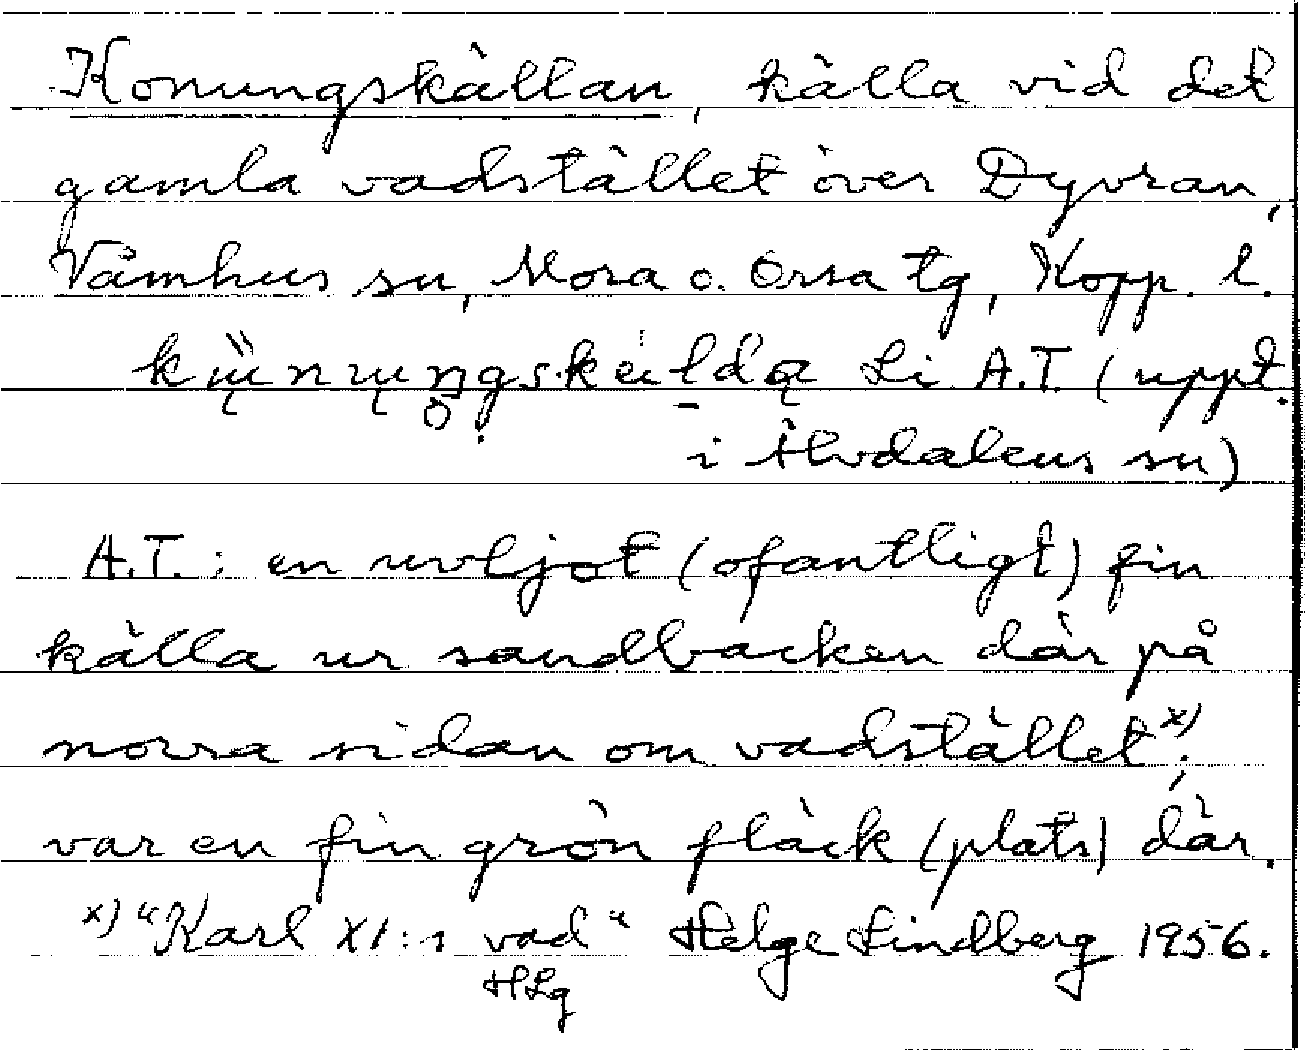 Konungskällan, källa vid det
gamla vadstället över Dyvran,
Våmhus sn, Mora o. Orsa tg, Kopp. l.
Li A.T. (uppt.
i Älvdalens sn)
A.T.: en uvljot (ofantligt) fin
källa ur sandbacken där på
norra sidan om vadstället x);
var en fin grön fläck (plats) där.
x) "Karl XI:s vad" Helge Lindberg 1956.
HLg